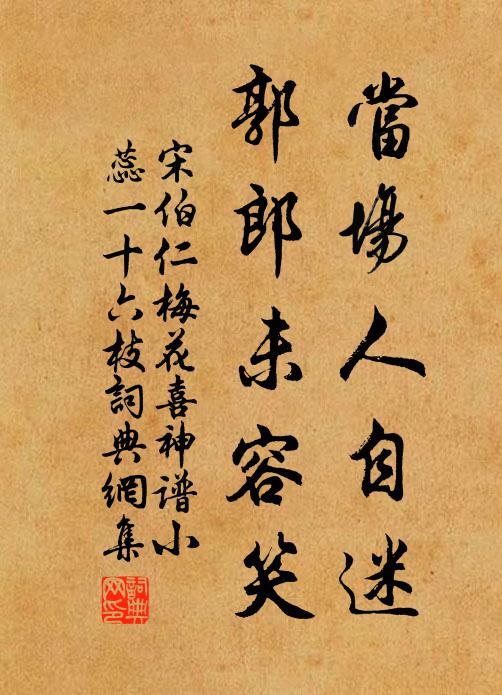 當場人自迷
郭郎未容笑
宋伯仁梅花喜神谱小
蕊一十六枝詞典網集
詞典网印